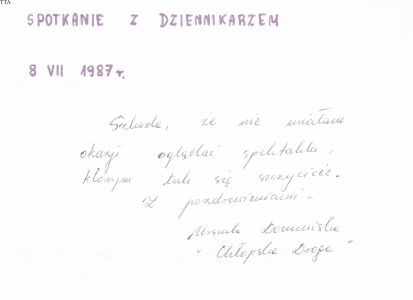 TTA
SPOTKANIE Z DZIENNIKARZEM
8 VII 1987 r.
Szkoda, że nie miałam
okazji oglądać spektaklu,
którym tak się szczycicie.
Z pozdrowieniami -
Urszula
"Chłopska Droga"